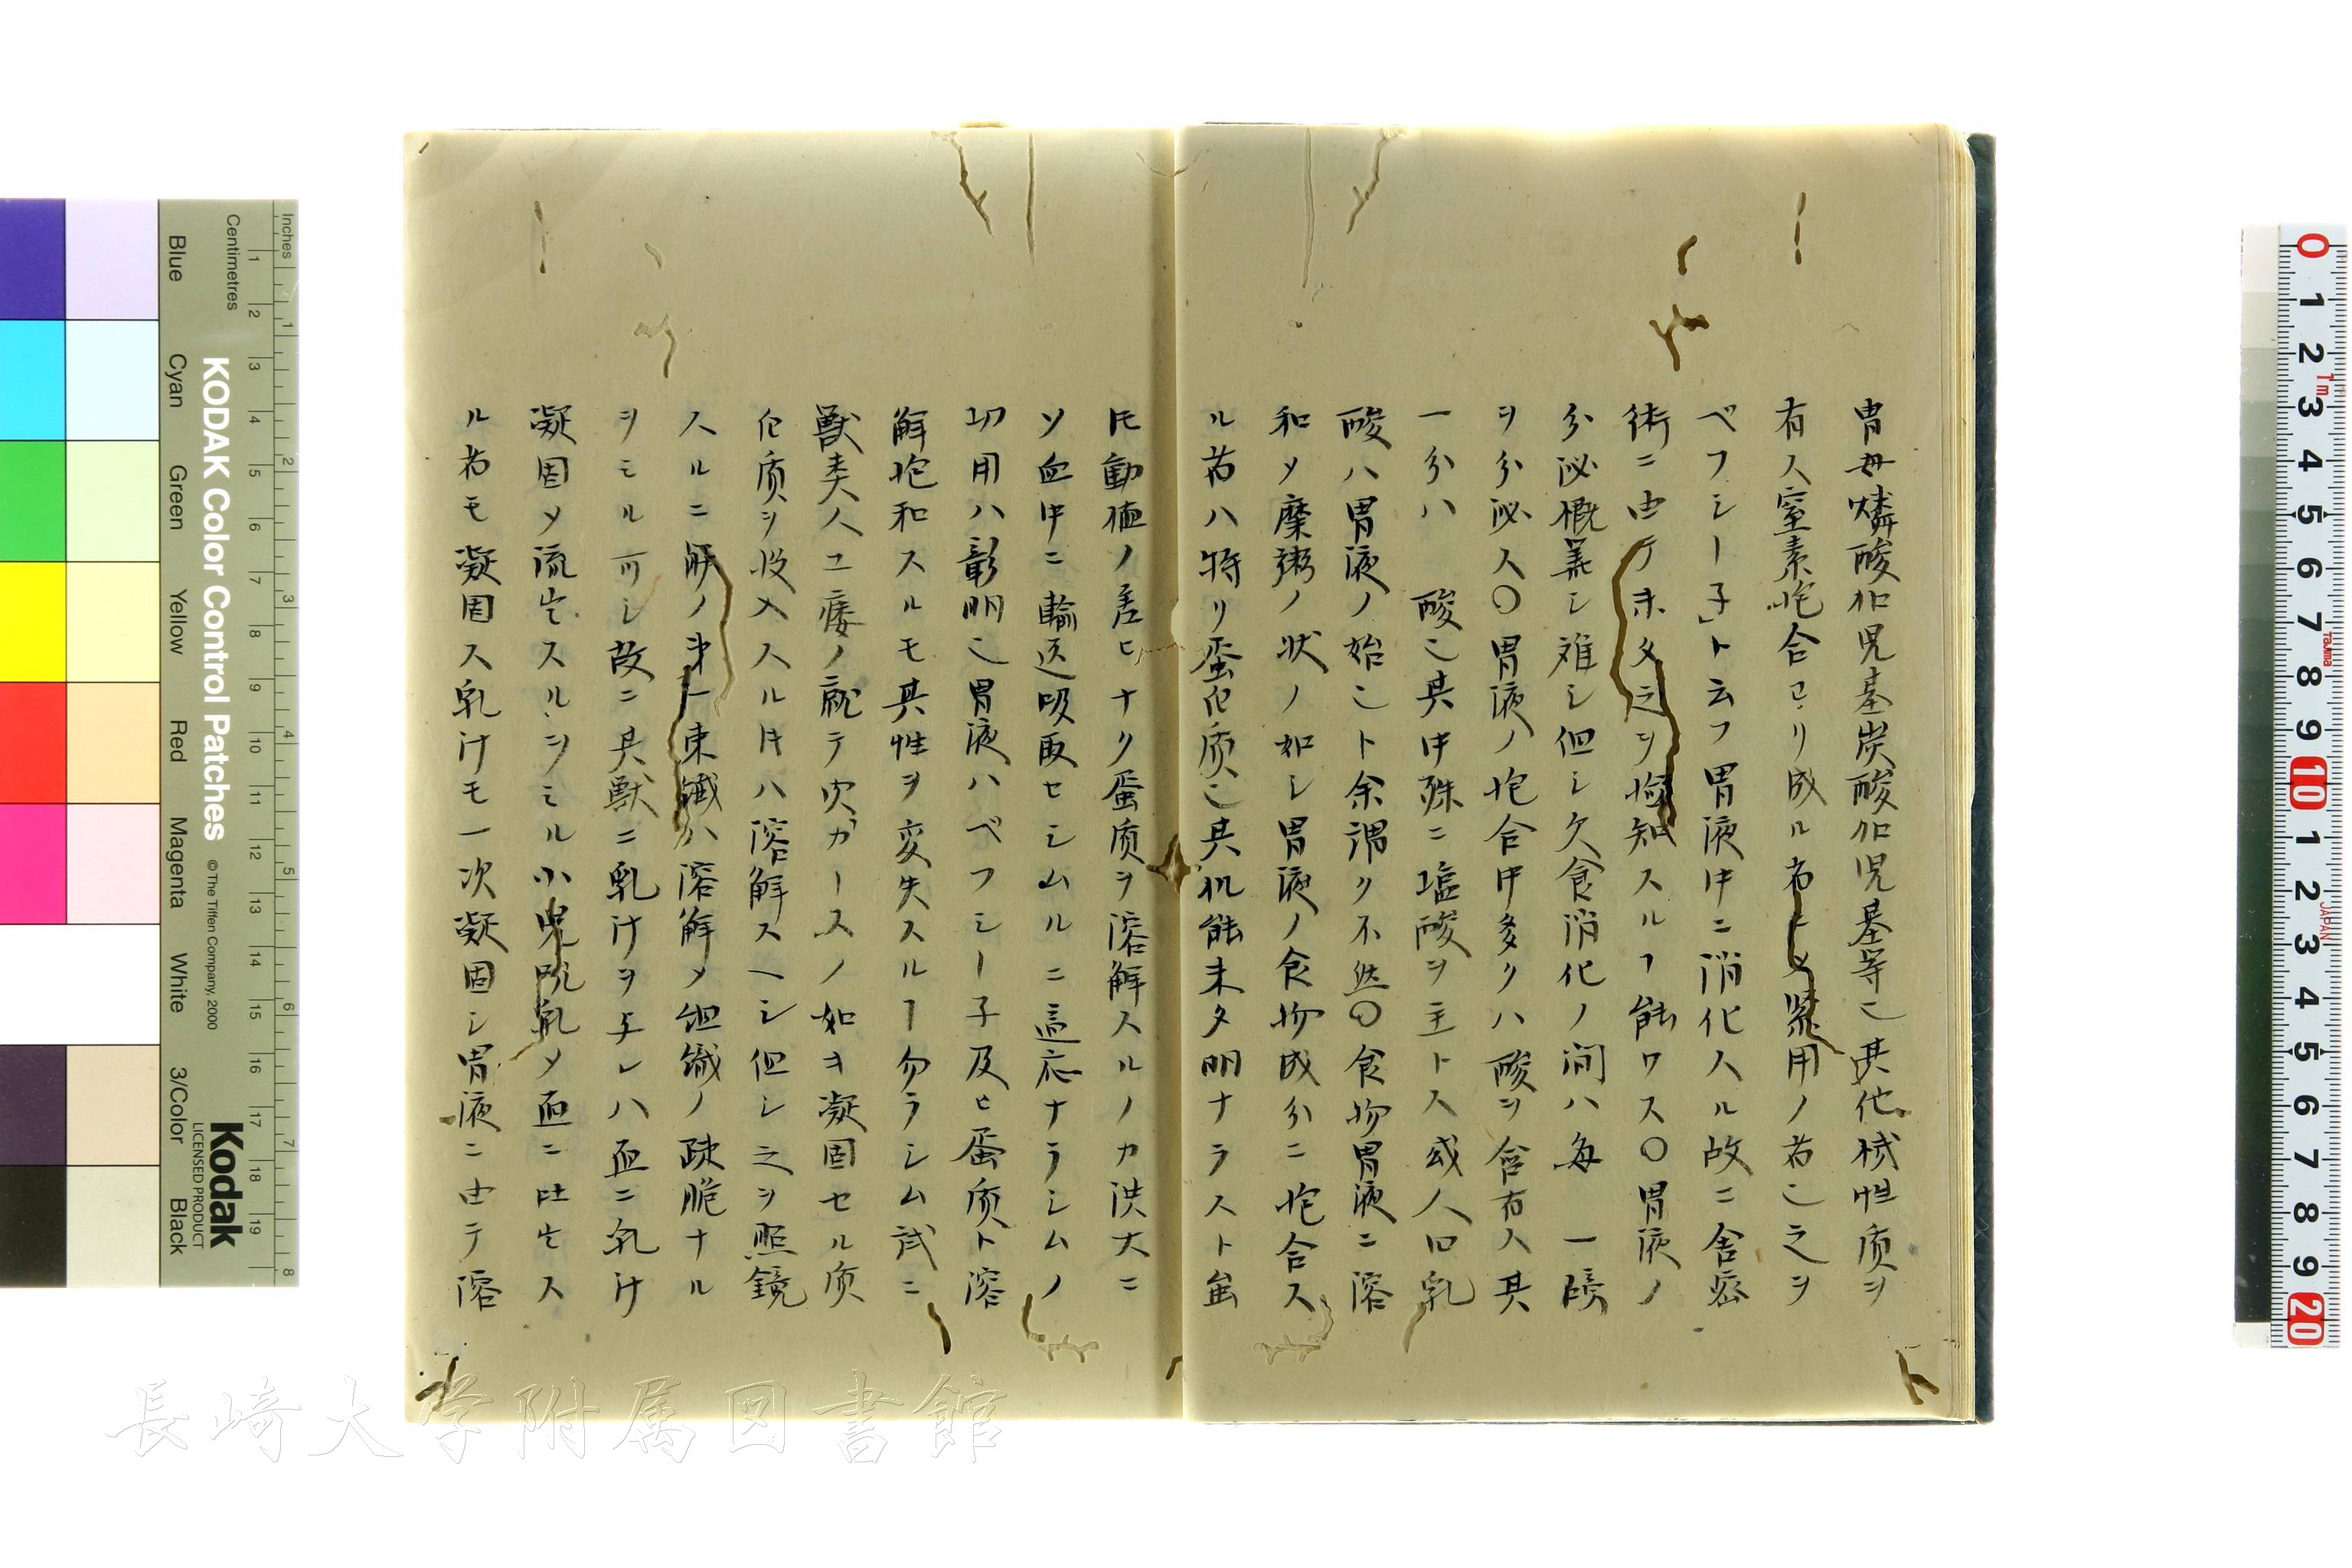 胃母燐酸加児基炭酸加児基等〆其他械性质ヲ
有ス窒素抱合ヨリ成ル者ニメ緊用ノ者〆之ヲ
ベフシー子」ト云フ胃液中ニ消化スル故ニ舎密
術ニ由テ未タ之ヲ撿知スルヿ能ワス〇胃液ノ
分泌概算シ难シ但シ欠食消化ノ间ハ毎 一隤
ヲ分泌ス〇胃液ノ抱合中多クハ酸ヲ含有ス其
一分ハ 酸〆其中殊ニ塩酸ヲ主トス或人曰乳
酸ハ胃液ノ始〆ト余謂ク不然〇食物胃液ニ溶
和メ糜粥ノ状ノ如シ胃液ノ食物成分ニ抱合ス
ル者ハ特リ蛋白质〆其机能未タ明ナラスト雖
圧動植ノ差ヒナク蛋质ヲ溶解スルノカ洪大ニ
ソ血中ニ輸送吸取セシムルニ適応ナラシムノ
功用ハ彰明〆胃液ハベフシー子及ヒ蛋质ト溶
解抱和スルモ其性ヲ変失スルー勿ラシム試ニ
獣类人工瘘ノ就テ穴ガースノ如キ凝固セル质
白质ヲ收入スル圷ハ溶解スヘシ但シ之ヲ照鏡
スルニ解ノ苐一束鐡ハ溶解メ组織ノ疎脆ナル
ヲモル可シ故ニ其獣ニ乳汁ヲ与レハ直ニ乳汁
凝固メ流出スルヲミル小児吮乳メ直ニ吐出ス
ル者モ凝固ス乳汁モ一次凝固シ胃液ニ由テ溶
長崎大学附属図書館
KODAK Color Control Patches
© The Tiffen Company, 2000
Kodak
LICENSED PRODUCT
Inches
Centimetres
Blue
Cyan
Green
Yellow
Red
Magenta
White
3/Color
Black